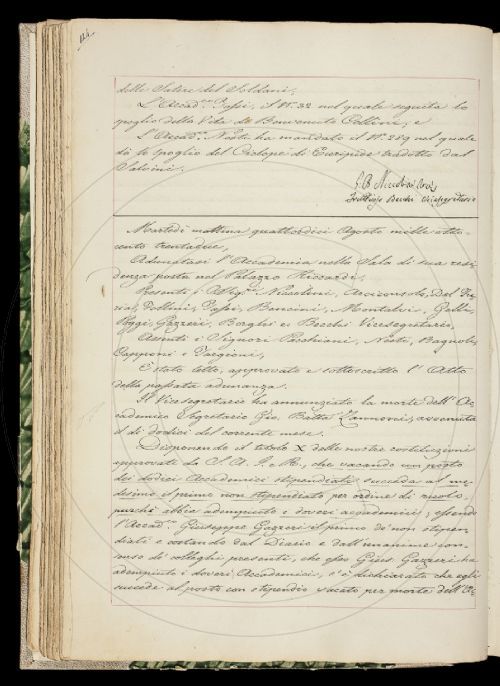 delle Satire del Soldani;
L'Accad.co Tassi, il N.° 32 nel quale seguita lo
spoglio della Vita di Benvenuto Cellini, e
L'Accad.co Nesti ha mandato il N.° 289 nel quale
dà lo spoglio del Ciclope di Euripide tradotto dal
Salvini.
G. B. Niccolini
Fruttuoso Becchi Vicesegretario
Martedì mattina quattordici Agosto mille otto-
cento trentadue,
Adunatasi l'Accademia nella Sala di sua resi-
denza posta nel Palazzo Riccardi,
Presenti i Sig.ri Niccolini, Arciconsolo, Del Fu-
ria, Follini, Tassi, Bencini, Montalvi, Gelli,
Poggi, Gazzeri, Borghi e Becchi Vicesegretario,
Assenti i Signori Pacchiani, Nesti, Bagnoli,
Capponi e Targioni,
È stato letto, approvato e sottoscritto l'Atto
della passata adunanza.
Il Vicesegretario ha annunziato la morte dell'Ac-
cademico Segretario Gio. Batta Zannoni, avvenuta
il dì dodici del corrente mese.
Disponendo il titolo X delle nostre costituzioni
approvate da S. A. I. e R., che vacando un posto
dei dodici Accademici stipendiati succeda al me-
desimo il primo non stipendiato per ordine di ruolo,
purché abbia adempiuto i doveri accademici; essendo
l'Accad.co Giuseppe Gazzeri il primo de' non stipen-
diati e costando dal Diario e dall'unanime con-
senso di colleghi presenti, che esso Gius. Gazzeri ha
adempiuto i doveri Accademici, s'è dichiarato che egli
succede al posto con stipendio vacato per morte dell'Ac